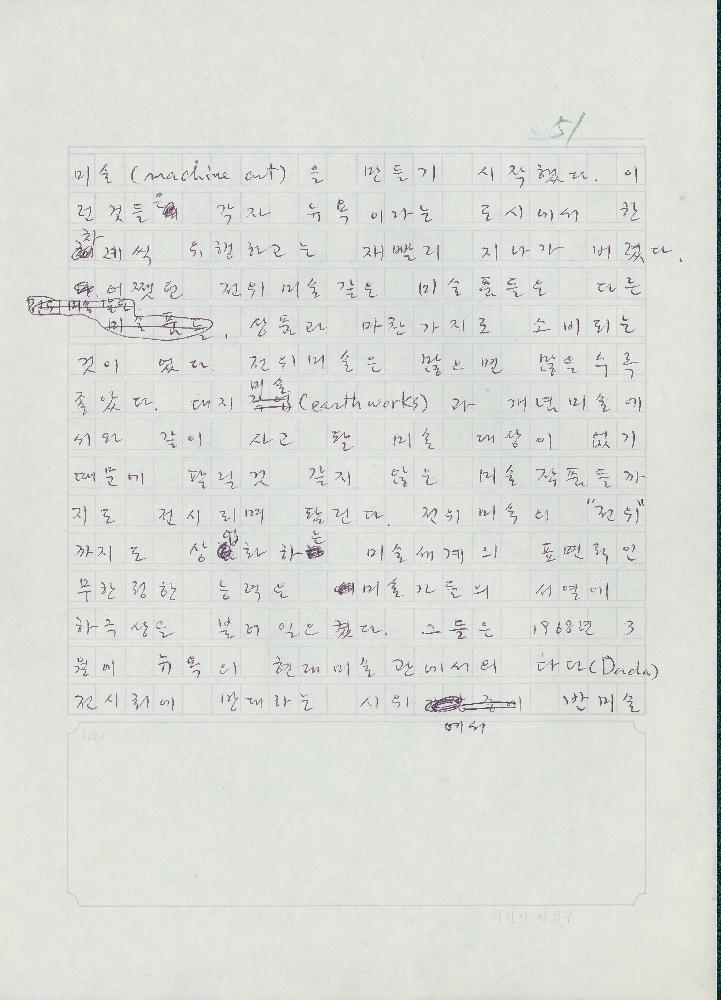 51
미술 (machine art) 을 만들기 시작했다. 이
런 것들은 각자 뉴욕이라는 도시에서 한
차례씩 유행하고는 재빨리 지나가 버렸다.
어쨌던 전위미술같은 미술품들은 다른
전위미술품들
미술품들, 상품과 마찬가지로 소비되는
것이 었다. 전위미술은 많으면 많을수록
좋았다. 대지미술(earthworks) 과 개념미술에
서와 같이 사고 팔 미술 대상이 없기
때문에 팔릴것 같지 않은 미술 작품들까
지도 전시되며 팔린다. 전위미술의 "전위"
까지도 상업화하는 미술세계의 표면적인
무한정한 능력은 미술가들의 서열에
하극상을 불러 일으켰다. 그들은 1968년 3
월에 뉴욕의 현대미술관에서의 다다(Dada)
전시회에 반대하는 시위 중에 반미술
에서